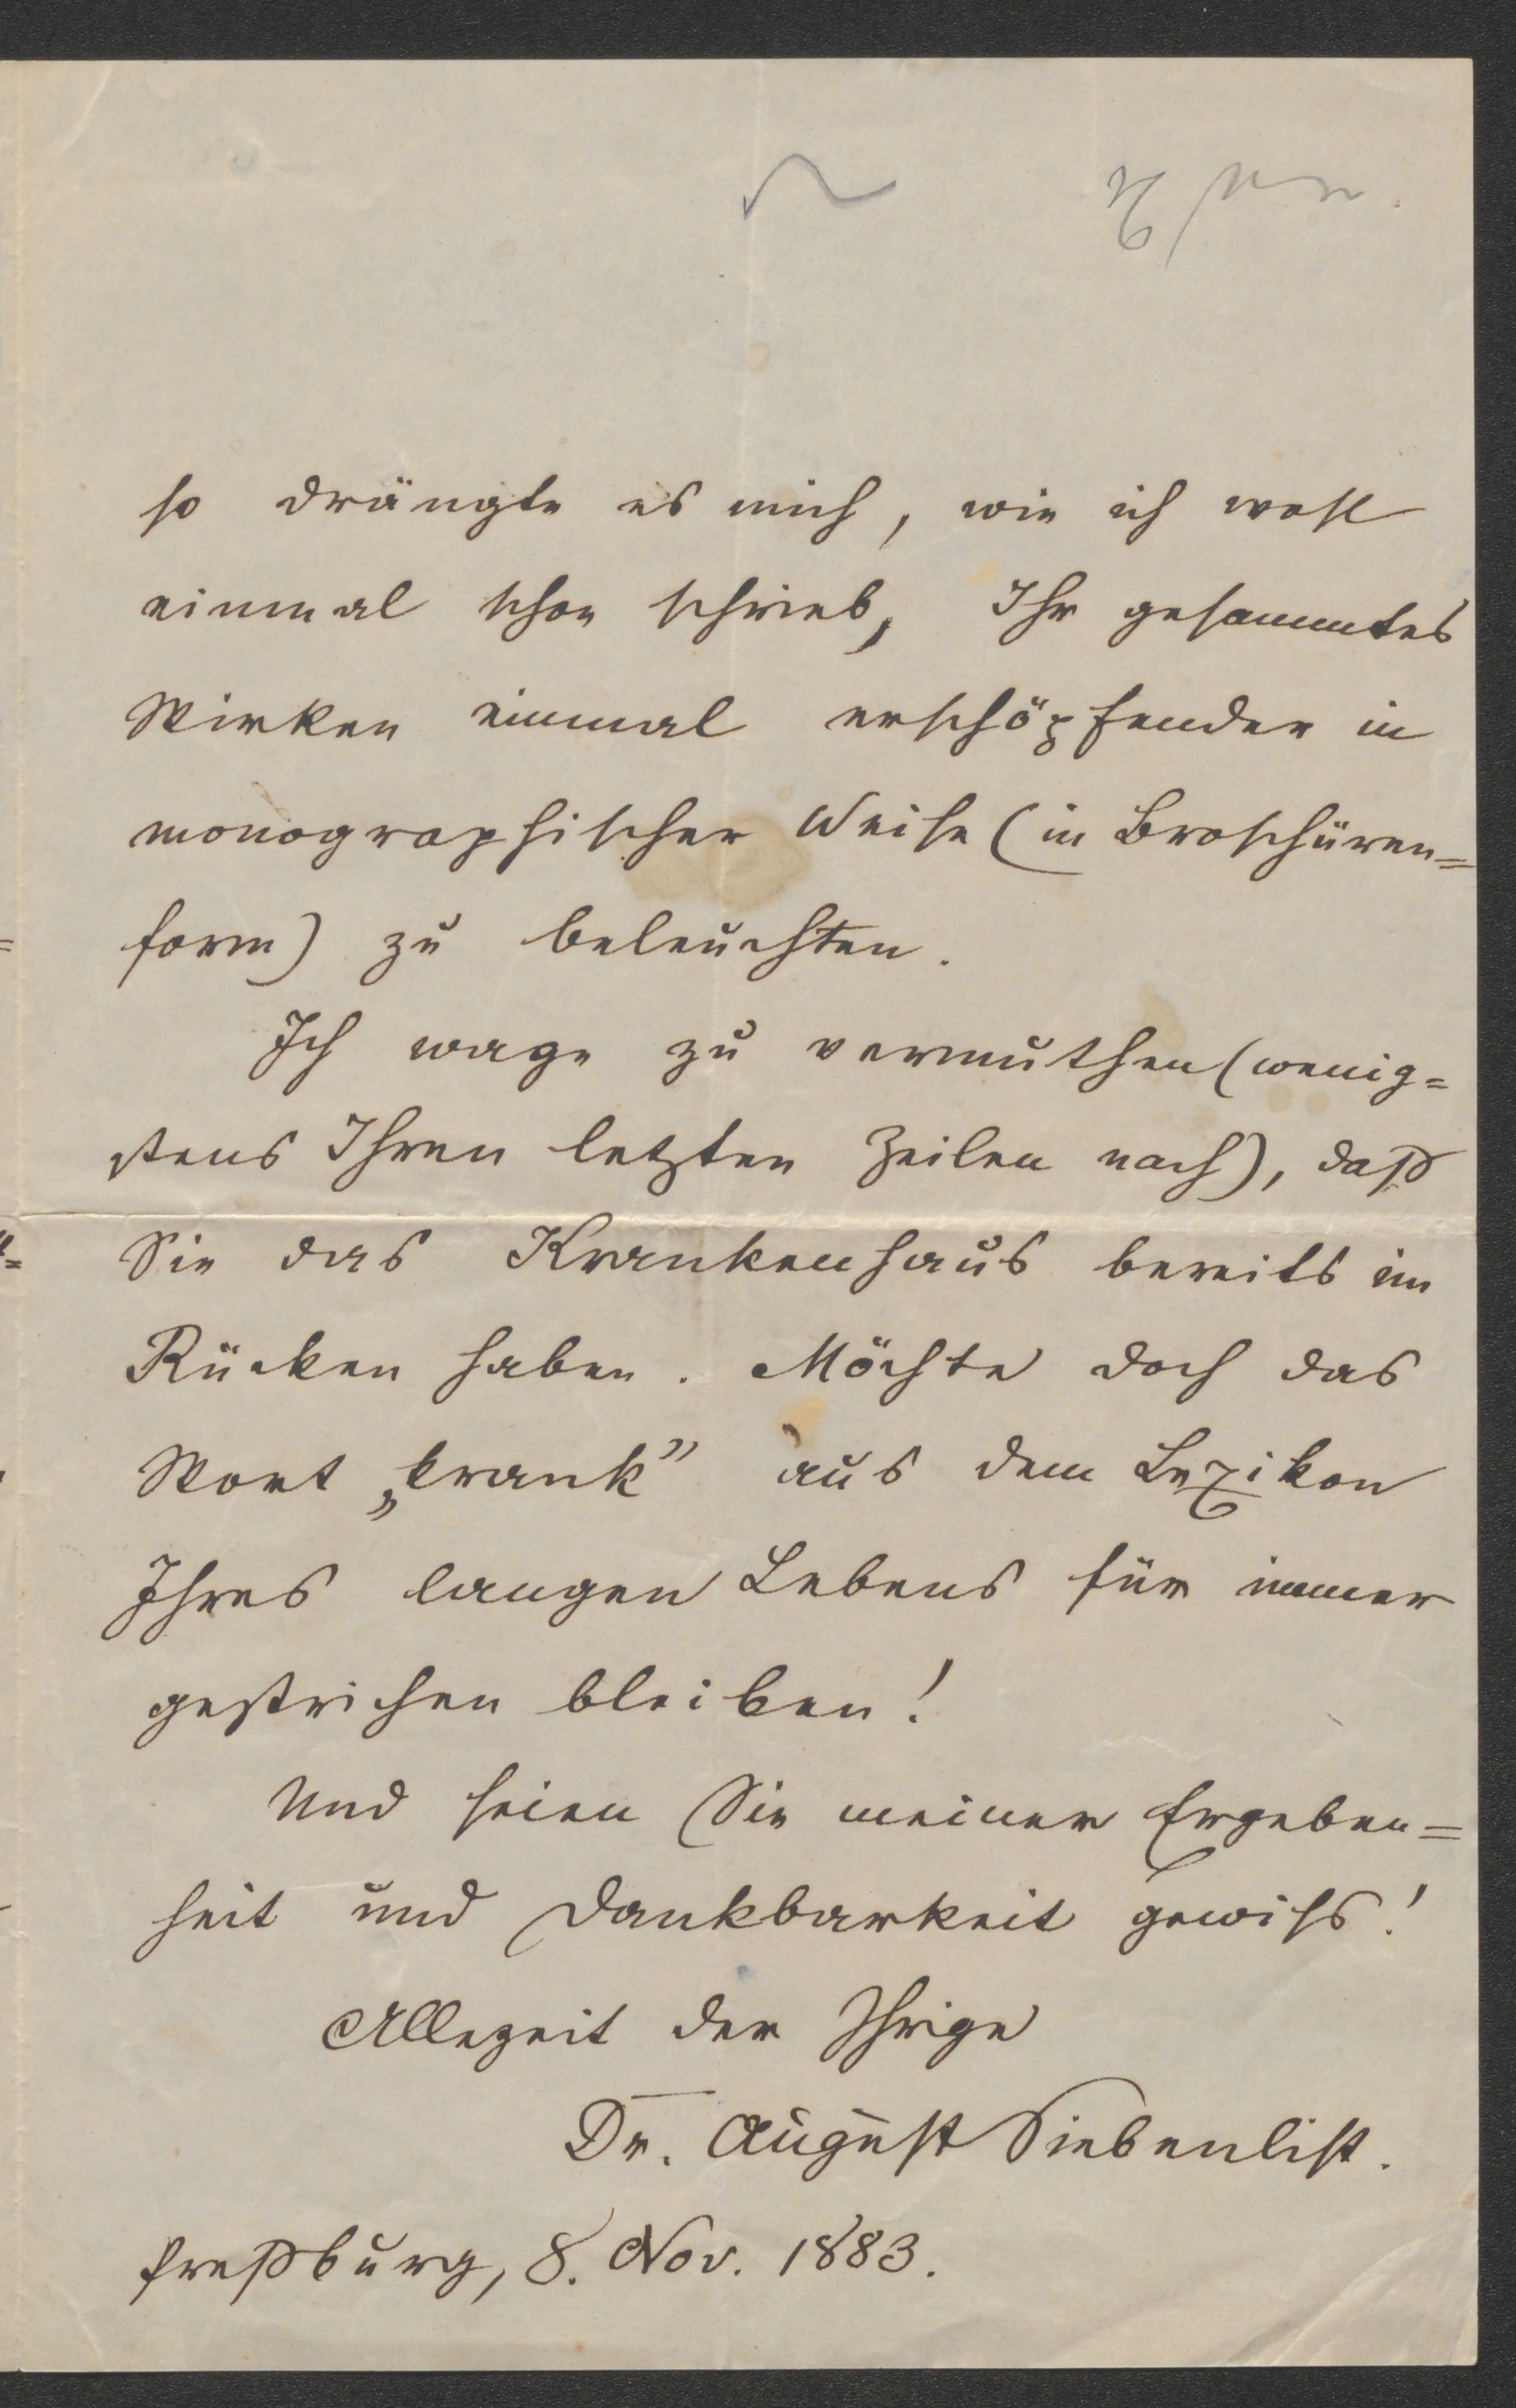 so drängte es mich, wie ich wohl
einmal schon schrieb, Ihr gesammtes
Wirken einmal erschöpfender in
monographischer Weise (in Broschüren=
form) zu beleuchten.
Ich wage zu vermuthen (wenig=
stens Ihren letzten Zeilen nach), daß
Sie das Krankenhaus bereits im
Rücken haben. Möchte doch das
Wort „krank” aus dem Lexikon
Ihres langen Lebens für immer
gestrichen bleiben!
Und seien Sie meiner Ergeben=
heit und Dankbarkeit gewiss!
Allezeit der Ihrige
Dr. August Siebenlist.
Preßburg, 8. Nov. 1883.